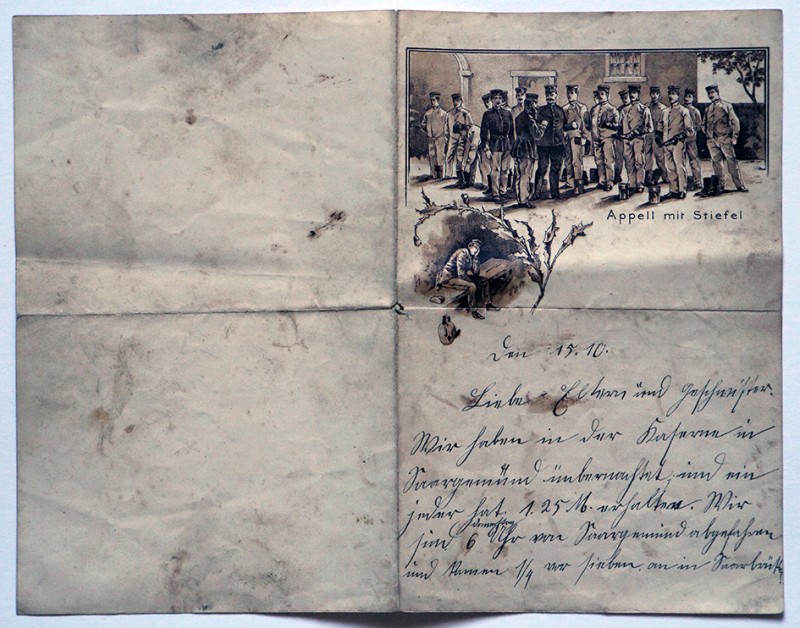 Appell mit Stiefel
Den 15.10.
Liebe Eltern und Geschwister.
Wir haben in der Kaserne in
Saargemünd übernachtet, und ein
jeder hat 1.25 M. erhalten. Wir
sind 6 Uhr von Saargemünd abgefahren
und kamen 1/4 vor sieben an in Saarbrück